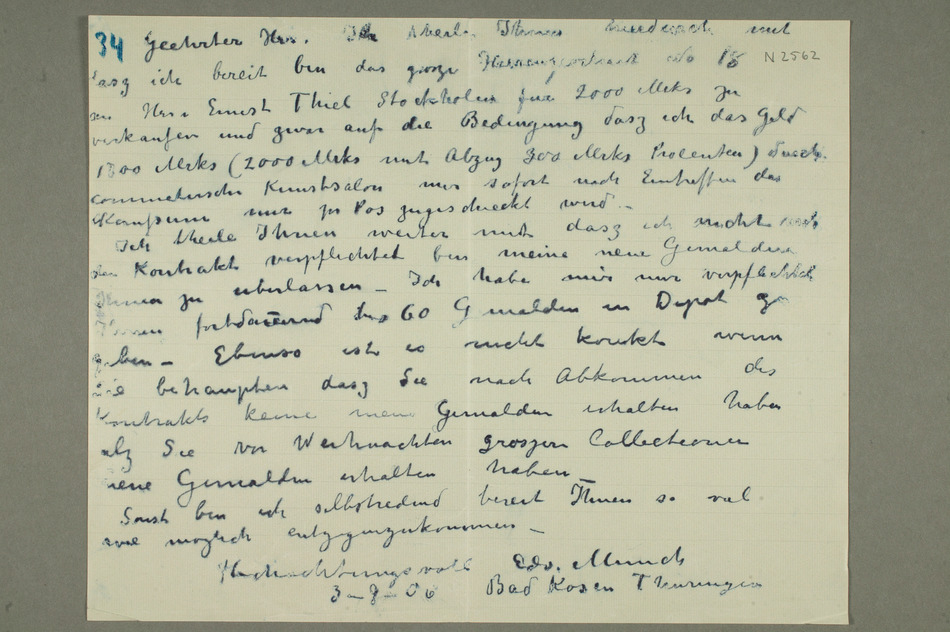 34 Geehrter Herr. Ich theile Ihnen hiedurch mit
N 2562
dasz ich bereit bin das grosze No 18
an Herr Ernest Thiel Stockholm fur 2000 Mrks zu
verkaufen und zwar auf die Bedingung dasz ich das Geld
1700 Mrks (2000 Mrks mit Abzug 300 Mrks Procenten) durch
Kunstsalon mir sofort nach Eintreffen das
mir zugeschickt wird. –
Ich theile Ihnen weiter mit dasz ich nicht nach
den Kontrakt verpflichtet bin meine neue Gemalden
Ihnen zu uberlassen – Ich habe mir nur verpflichtet
Ihnen fortdauernd bis 60 Gemalden in Depot zu
geben – Ebenso ist es nicht korekt wenn
Sie behaupten dasz Sie nach Abkommen des
Kontrakts keine neue Gemalden erhalten haben
alz Sie vor Weihnachten groszen Collectionen
neue Gemalden erhalten haben
Sonst bin ich selbstredend bereit Ihnen so viel
wie moglich entgegenzukommen –
Hochachtungsvoll Edv. Munch
3–8–06 Bad Kosen Thuringen